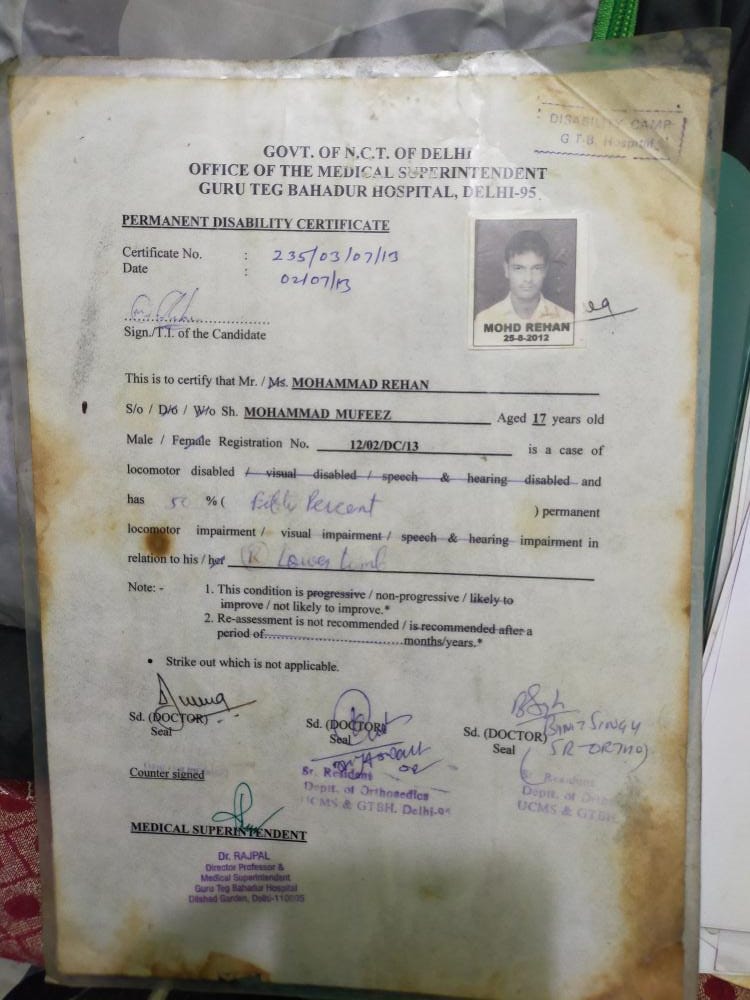 DISABILITY CAMP
G.T.B. Hospital
GOVT. OF N.C.T. OF DELHI
OFFICE OF THE MEDICAL SUPERINTENDENT
GURU TEG BAHADUR HOSPITAL, DELHI-95
PERMANENT DISABILITY CERTIFICATE
Certificate No. : 235/03/07/13
Date : 02/07/13
MOHD REHAN
25-8-2012
Sign./T.I. of the Candidate
This is to certify that Mr. / Ms. MOHAMMAD REHAN
S/o / D/o / W/o Sh. MOHAMMAD MUFEEZ Aged 17 years old
Male / Female Registration No. 12/02/DC/13 is a case of
locomotor disabled / visual disabled / speech & hearing disabled and
has 50 % ( Fifty Percent ) permanent
locomotor impairment / visual impairment / speech & hearing impairment in
relation to his / her (R) Lower Limb
Note: - 1. This condition is progressive / non-progressive / likely to
improve / not likely to improve.*
2. Re-assessment is not recommended / is recommended after a
period of..............................months/years.*
• Strike out which is not applicable.
Sd. (DOCTOR)
Seal
Sd. (DOCTOR)
Seal
Sr. Resident
Deptt. of Orthopedics
UCMS & GTBH, Delhi-95
Sd. (DOCTOR)
Seal
SINGH
(SR-ORTHO)
Sr. Resident
Deptt. of
UCMS & GTBH
Counter signed
MEDICAL SUPERINTENDENT
Dr. RAJPAL
Director Professor &
Medical Superintendent
Guru Teg Bahadur Hospital
Dilshad Garden, Delhi-110095